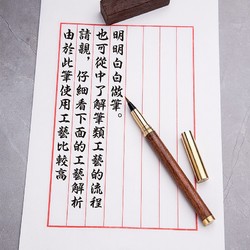 由於此筆使用工藝比較高
請親，仔細看下面的工藝解析
也可從中了解筆類工藝的流程
明明白白做筆。